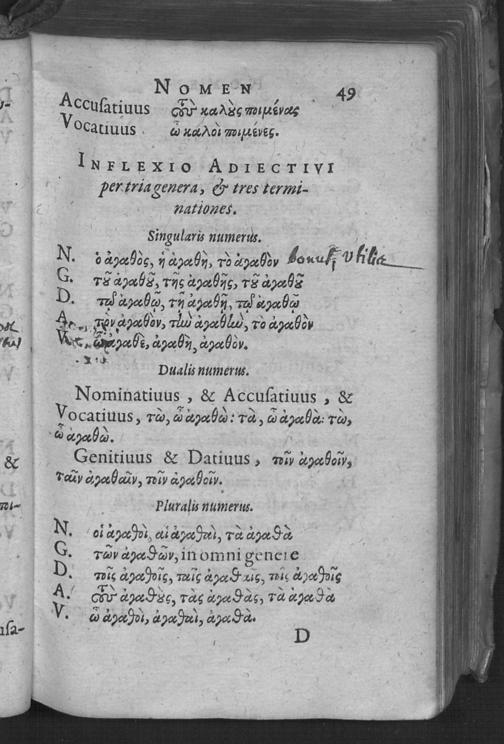 NOMEN 49
Accusatiuus τοὺς καλοὺς ποιμένας
Vocatiuus ὦ καλοὶ ποιμένες.
INFLEXIO ADIECTIVI
per tria genera, & tres termi-
nationes.
Singularis numerus.
N. ὁ ἀγαθὸς, ἡ ἀγαθὴ, τὸ ἀγαθὸν bonus, vtilis
G. τοῦ ἀγαθοῦ, τῆς ἀγαθῆς, τοῦ ἀγαθοῦ
D. τῷ ἀγαθῷ, τῇ ἀγαθῇ, τῷ ἀγαθῷ
A. τὸν ἀγαθὸν, τὴν ἀγαθὴν, τὸ ἀγαθὸν
V. ὦ ἀγαθὲ, ἀγαθὴ, ἀγαθὸν.
Dualis numerus.
Nominatiuus, & Accusatiuus, &
Vocatiuus, τὼ, ὦ ἀγαθὼ: τὰ, ὦ ἀγαθὰ: τὼ,
ὦ ἀγαθὼ.
Genitiuus & Datiuus, τοῖν ἀγαθοῖν,
ταῖν ἀγαθαῖν, τοῖν ἀγαθοῖν.
Pluralis numerus.
N. οἱ ἀγαθοὶ, αἱ ἀγαθαὶ, τὰ ἀγαθὰ
G. τῶν ἀγαθῶν, in omni genere
D. τοῖς ἀγαθοῖς, ταῖς ἀγαθαῖς, τοῖς ἀγαθοῖς
A. τοὺς ἀγαθοὺς, τὰς ἀγαθὰς, τὰ ἀγαθὰ
V. ὦ ἀγαθοὶ, ἀγαθαὶ, ἀγαθὰ.
D